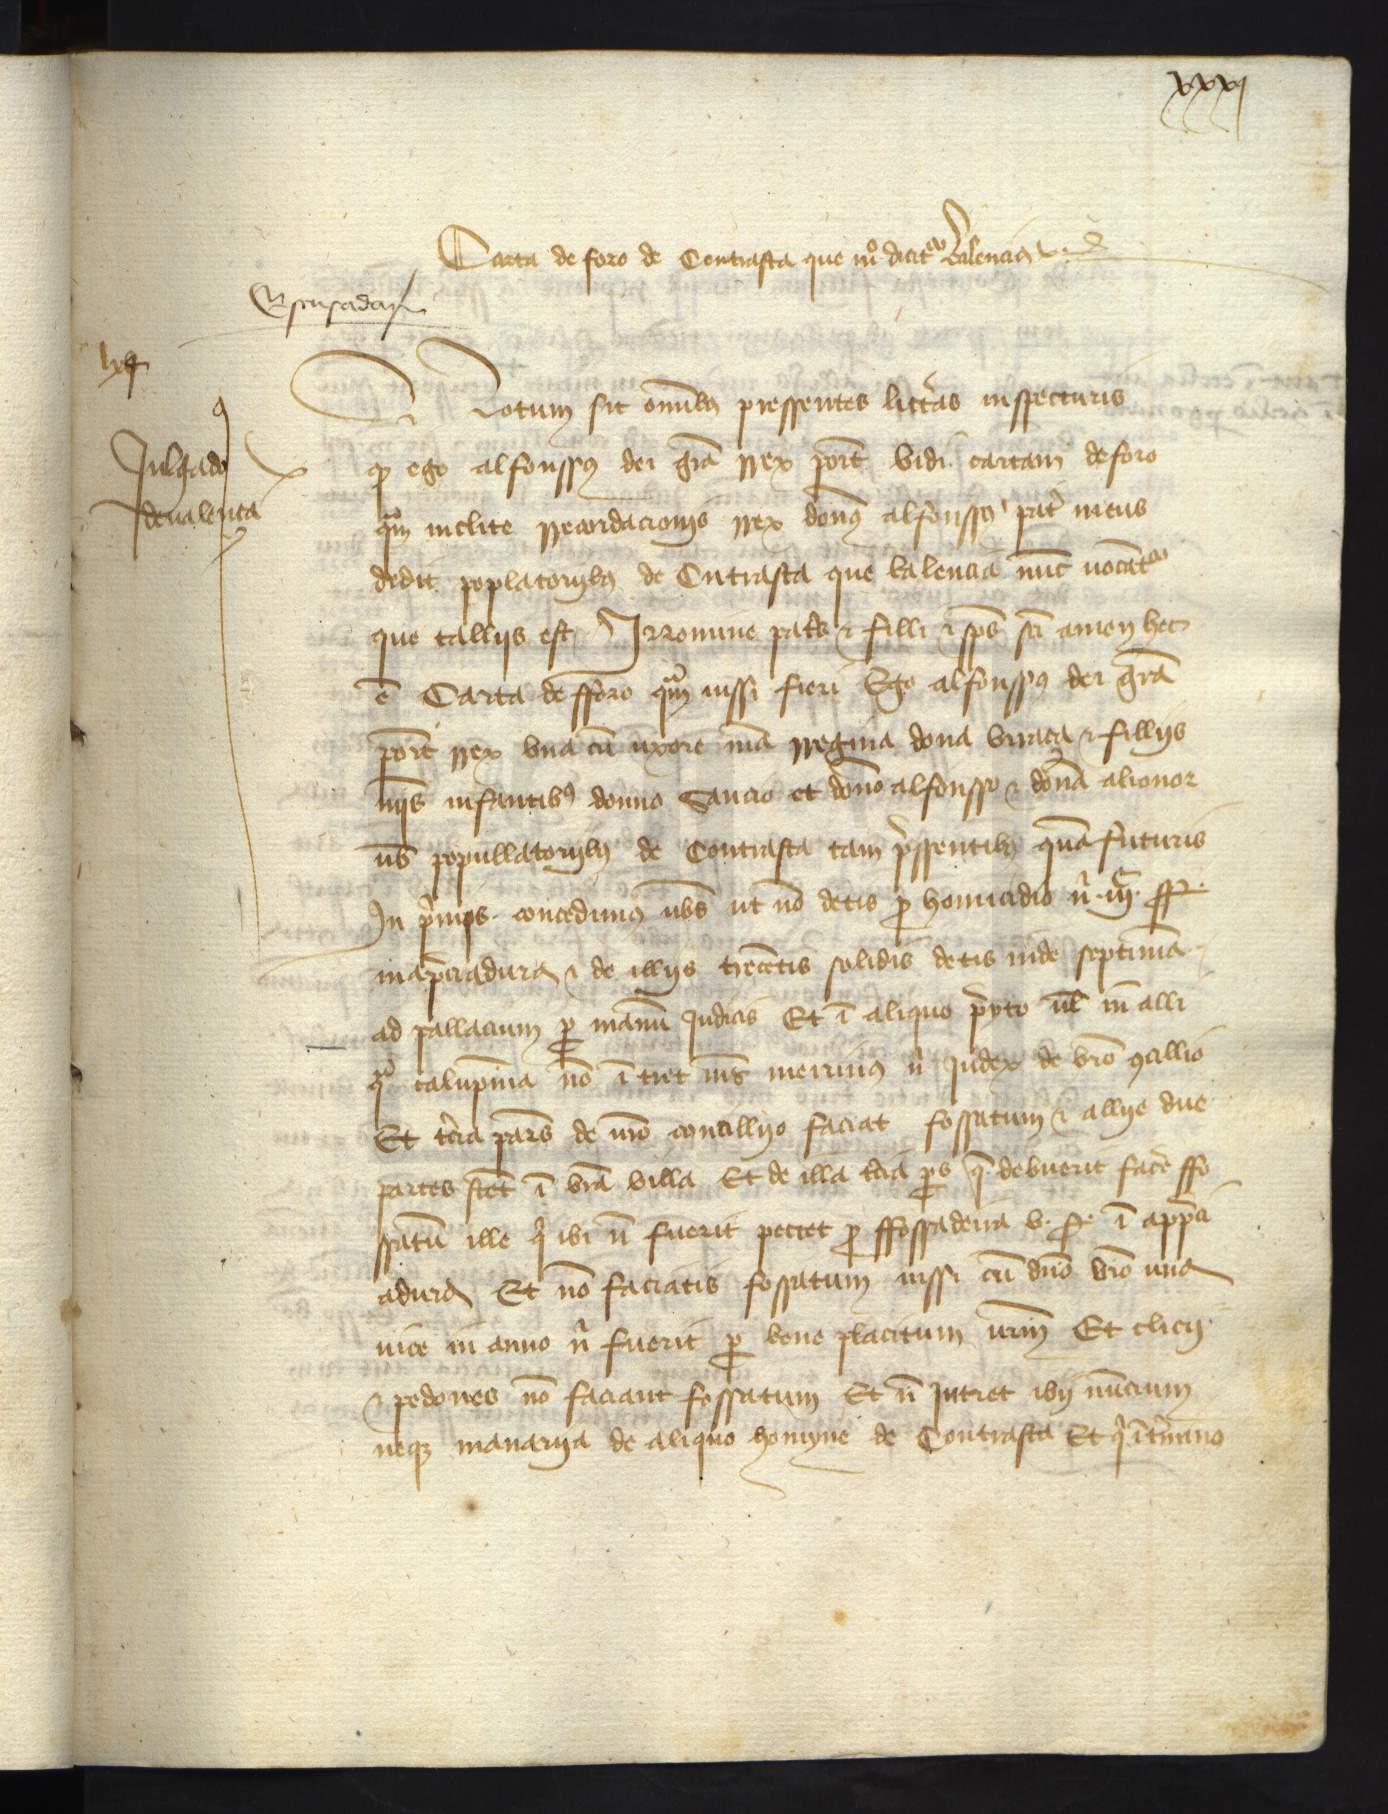 xxxj
Carta de foro de Contrasta que mo dicitur valencia
Escusada
lxj
Julgado
de valença
Notum sit omnibus pressentes litteras inspecturis
qd ego alfonssus dei gra rrex port vidi cartam de foro
quam inclite rrecordacionis rrex donus alfonssus pater meus
dedit poplatoribus de Cntrasta que valencia nunc uocatur
que tallis est Irnomine patris & filli & sps sci amen hec
e Carta de fforo quam iussi fieri Ego alfonssus dei gra
port rrex vna cu uxore mea rregina dona vrraca & filliis
meis infantibus donno Sancio et dono alfonsso & dona alionor
uobis popullatoribus de Contrasta tam pressentibus quam futuris
In primis concedimus uobis ut no detis pro homicidio nisi iijc ss
in apreciadura & de illis trecentis solidis detis inde septimam
ad pallacium per manu Judicis Et i aliquo preyto uel in alli
qua calupnia no i tret meus meirinus nisi Judex de vro concillio
Et tercia pars de uro concillyo faciat fossatum & allie due
partes stet i vra villa Et de illa tercia pars que debuerit facere ffo
ssatu ille qui ibi n fuerit pectet pro ffossadeira v. ss i appreci
adura Et no faciatis fossatum nissi cu dno vro una
uice in anno nisi fuerit per bene placitum urm Et clicij
& pedones no faciant fossatum Et n Intret ibi nuncium
neque manaria de aliquo homyne de Contrasta Et qui i termino